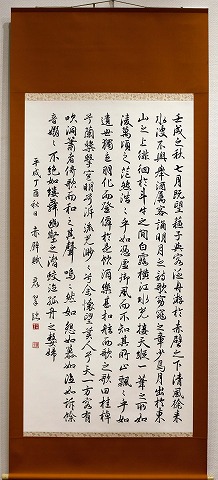 壬戌之秋七月既望蘇子與客泛舟游於赤壁之下清風徐来
水波不興舉酒屬客誦明月之詩歌窈窕之章少焉月出於東
山之上徘徊於斗牛之間白露横江水光接天縱一葦之所如
凌萬頃之茫然浩浩乎如憑虚御風而不知其所止飄飄乎如
遺世獨立羽化而登仙於是飲酒樂甚扣舷而歌之歌曰桂棹
兮蘭槳擊空明兮泝流光渺渺兮余懷望美人兮天一方客有
吹洞簫者倚歌而和之其聲嗚嗚然如怨如慕如泣如訴餘
音嫋嫋不絶如縷舞幽壑之潜蛟泣孤舟之嫠婦
平成丁酉秋日 赤壁賦